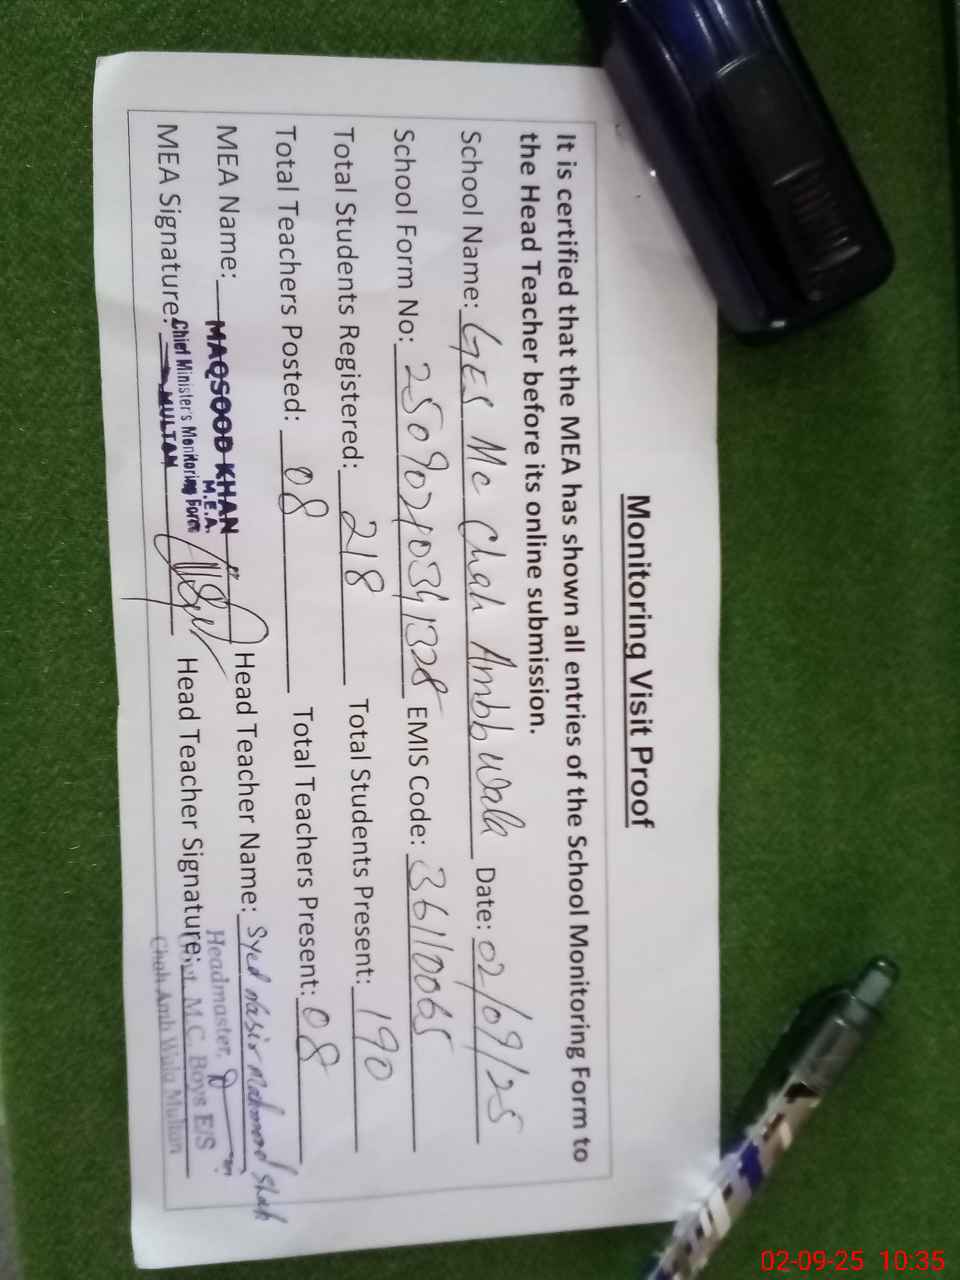 Monitoring Visit Proof
It is certified that the MEA has shown all entries of the School Monitoring Form to
the Head Teacher before its online submission.
School Name: GES Mc Chah Ambb wala Date: 02/09/25
School Form No: EMIS Code: 36110065
Total Students Registered: 218 Total Students Present: 190
Total Teachers Posted: 08 Total Teachers Present: 08
MEA Name: MAQSOOD KHAN Head Teacher Name: Syed Nasir Mahmood Shah
M.E.A. Headmaster,
Chief Minister's Monitoring Force
MEA Signature: MULTAN Head Teacher Signature: Govt. M.C. Boys E/S
Chah Amb Wala Multan
02-09-25 10:35